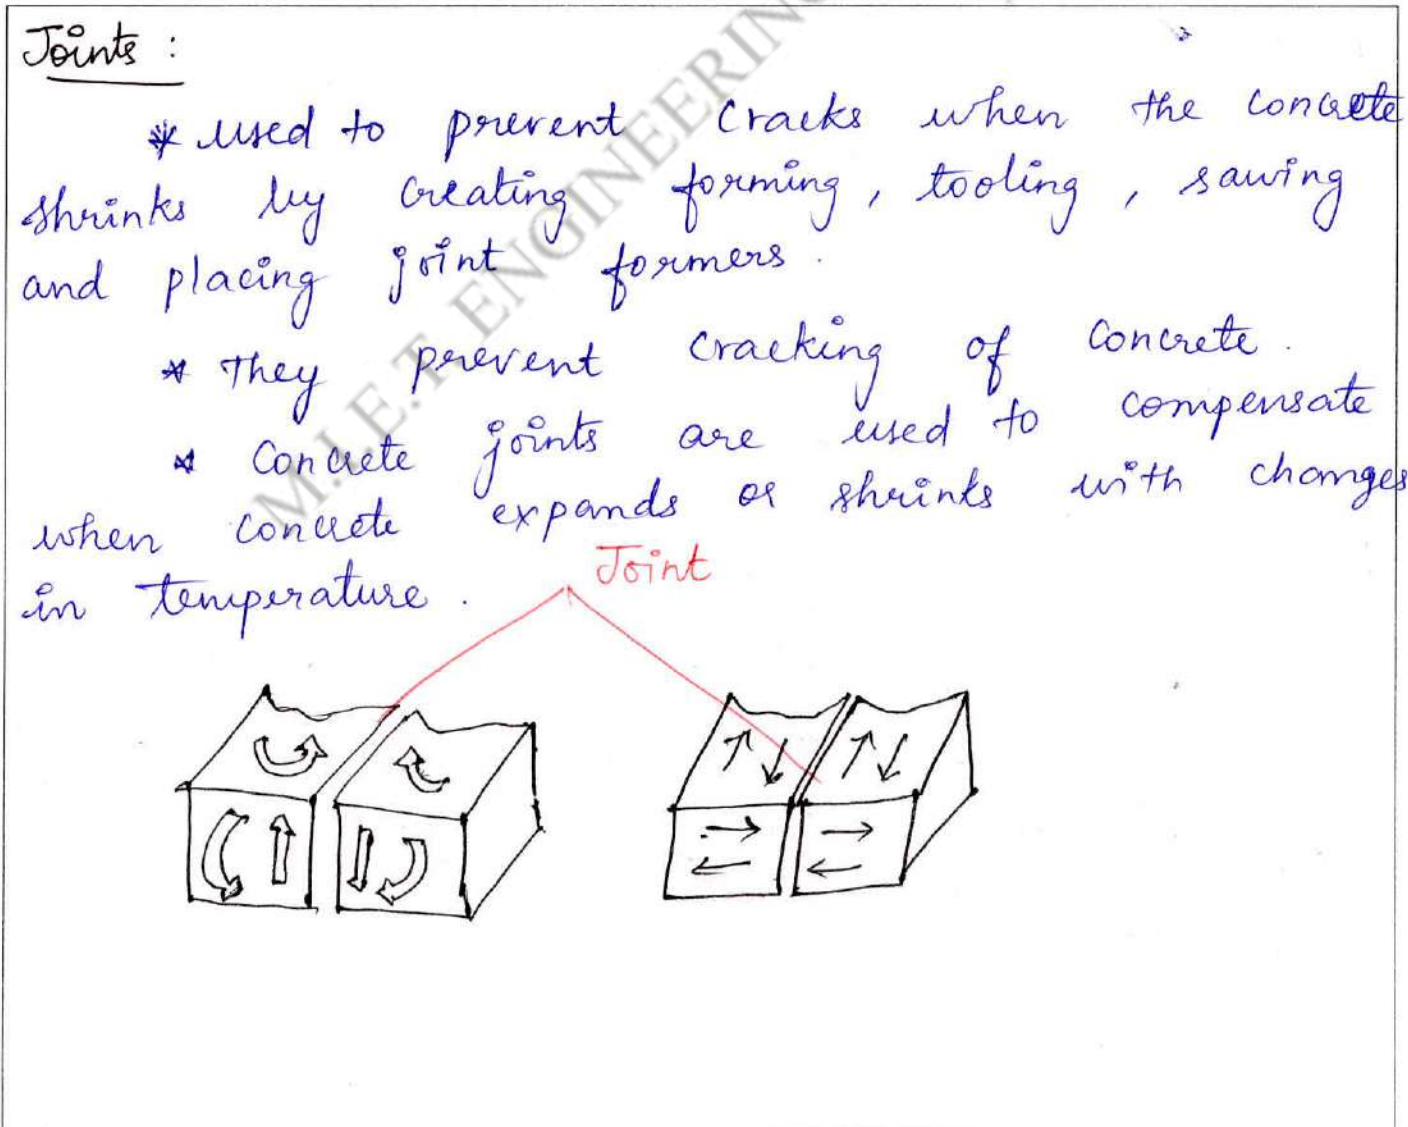 Joints :
* used to prevent cracks when the concrete
shrinks by creating forming, tooling, sawing
and placing joint formers.
* They prevent cracking of concrete.
* Concrete joints are used to compensate
when concrete expands or shrinks with changes
in temperature.
Joint
M.I.E.T. ENGINEERING